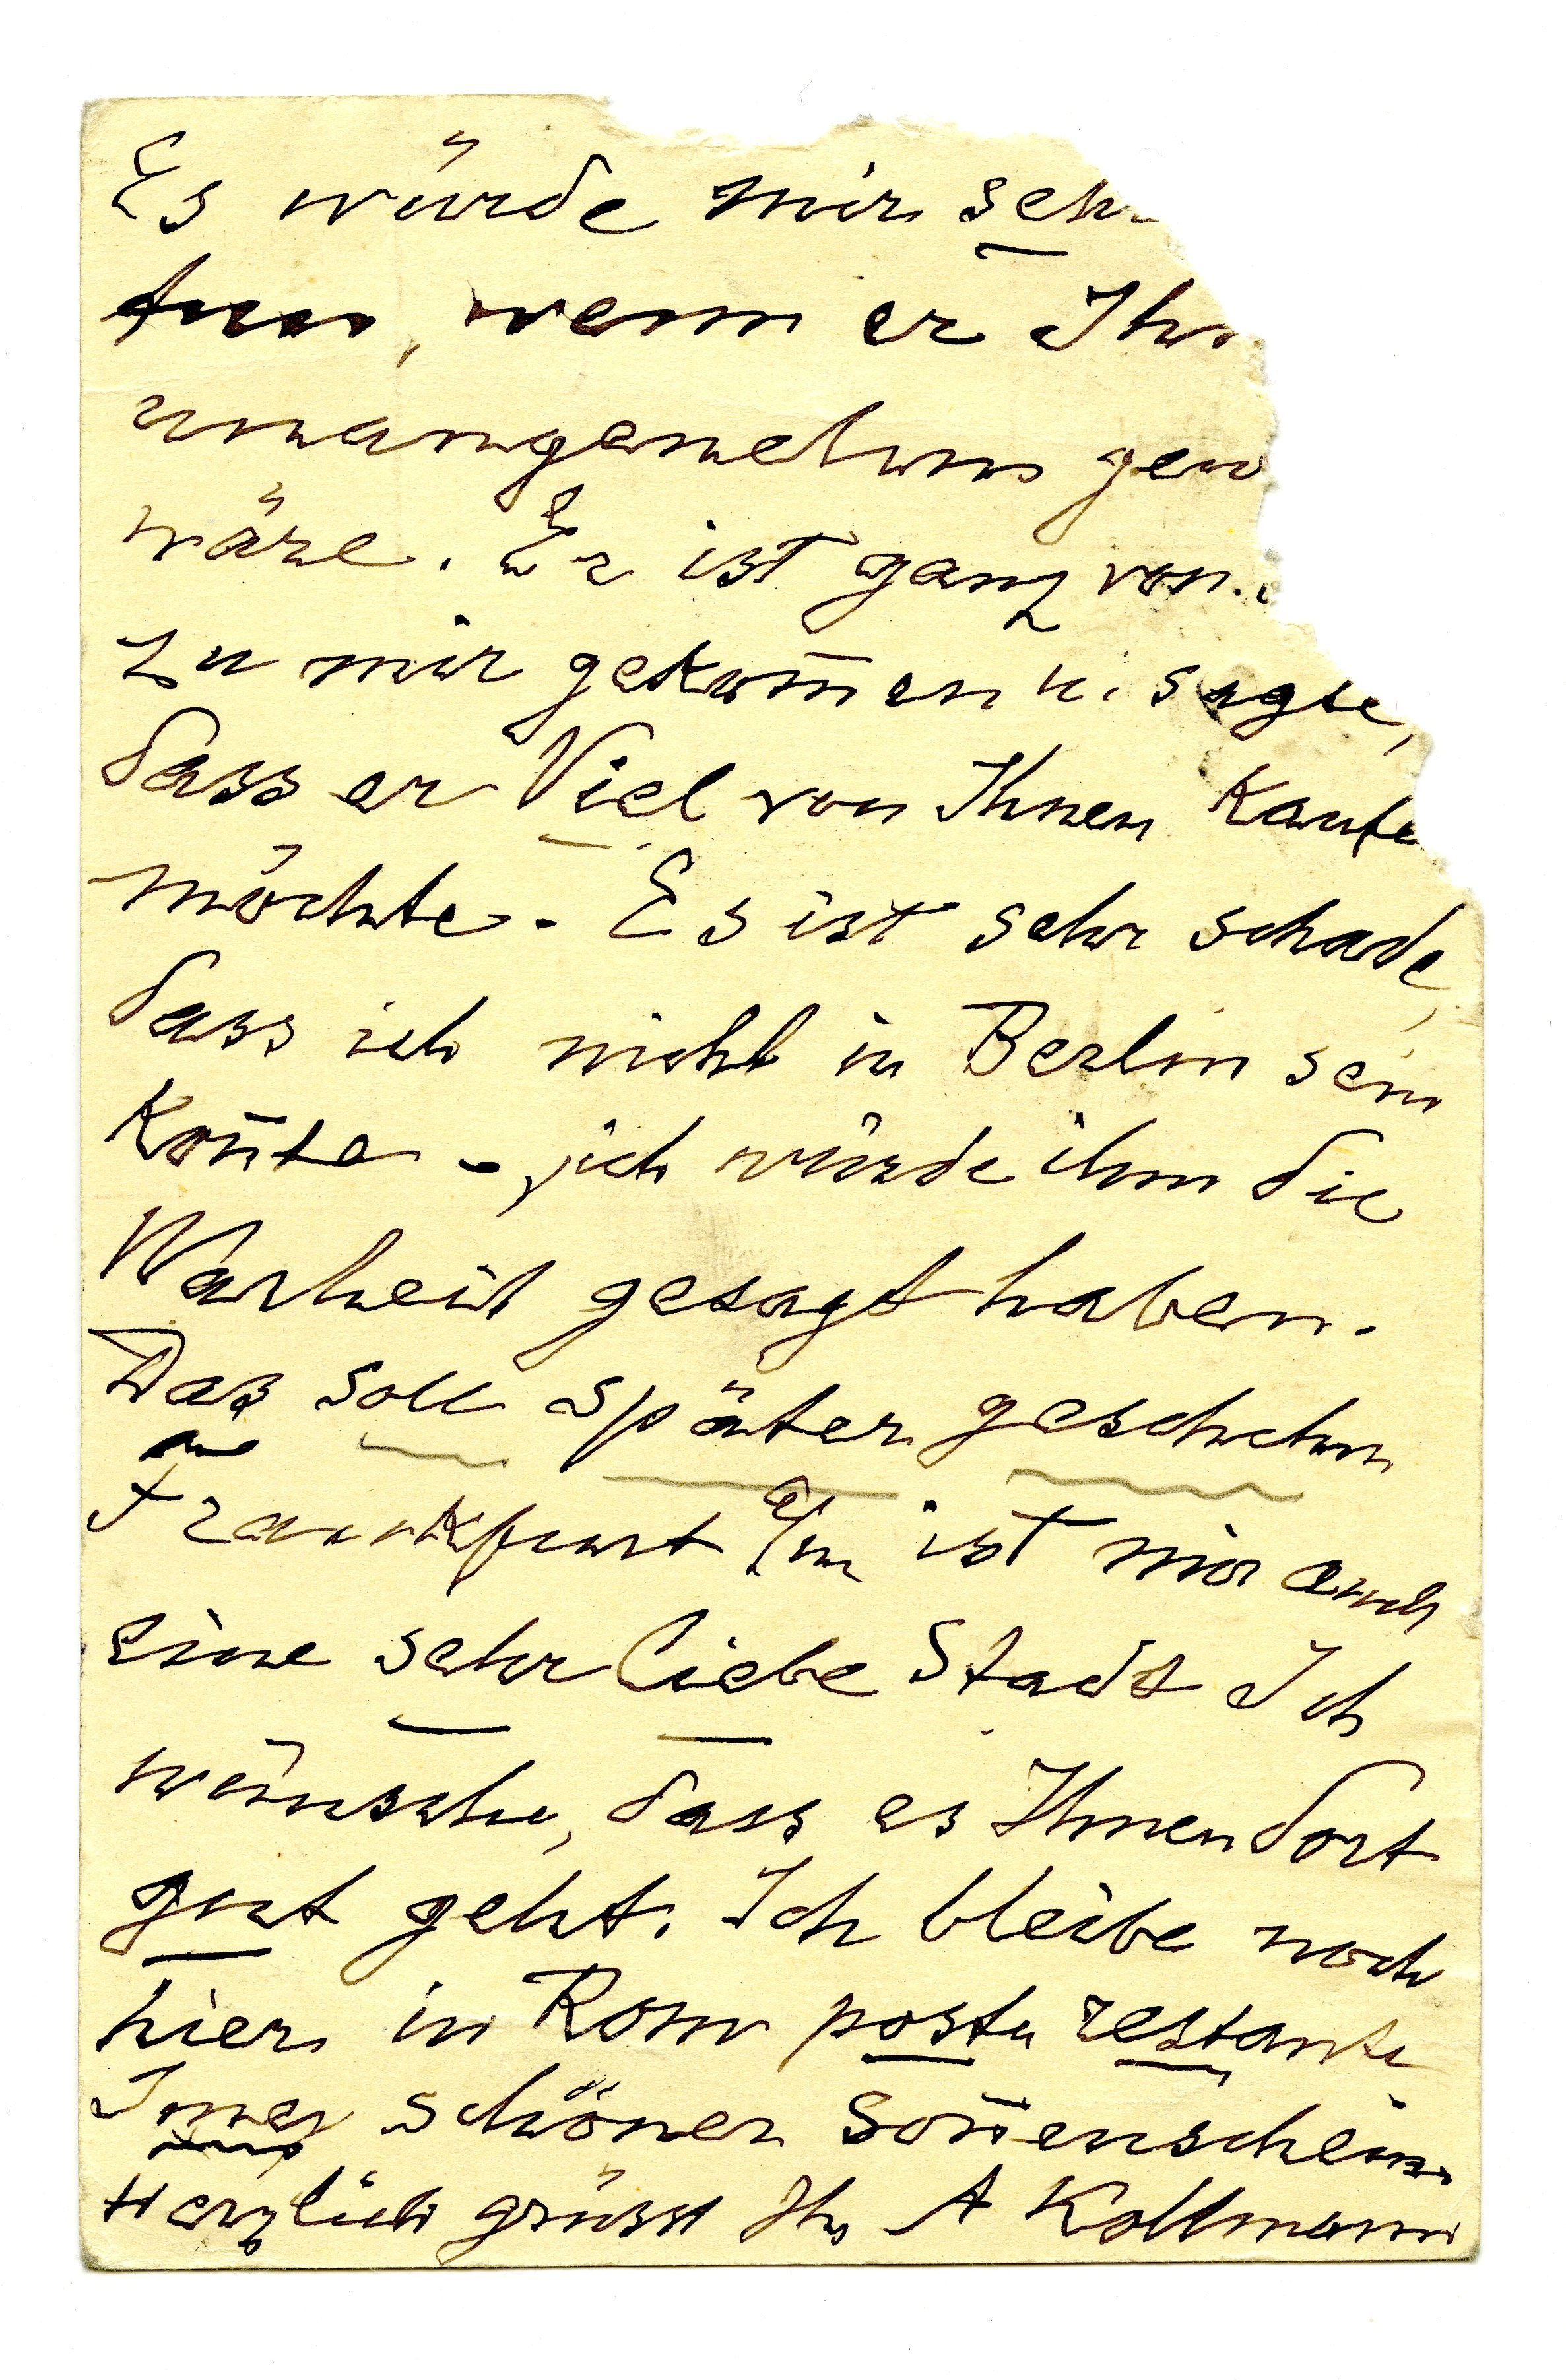 Es würde mir seh
tun, wenn er Ihn
unangenehm gew
wäre. Er ist ganz von
zu mir gekom̅en u. sagte,
dass er Viel von Ihnen Kaufe
möchte. Es ist sehr schade,
dass ich nicht in Berlin sein
Kon̅te - ich würde ihm die
Warheit gesagt haben.
Das soll später geschehen
Frankfurt a/m ist mir auch
eine sehr liebe Stadt Ich
wünsche, dass es Ihnen dort
gut geht. Ich bleibe noch
hier in Rom posta restante
Im̅er schöner Son̅enschein.
Herzlich grüsst Ihr A Kollmann